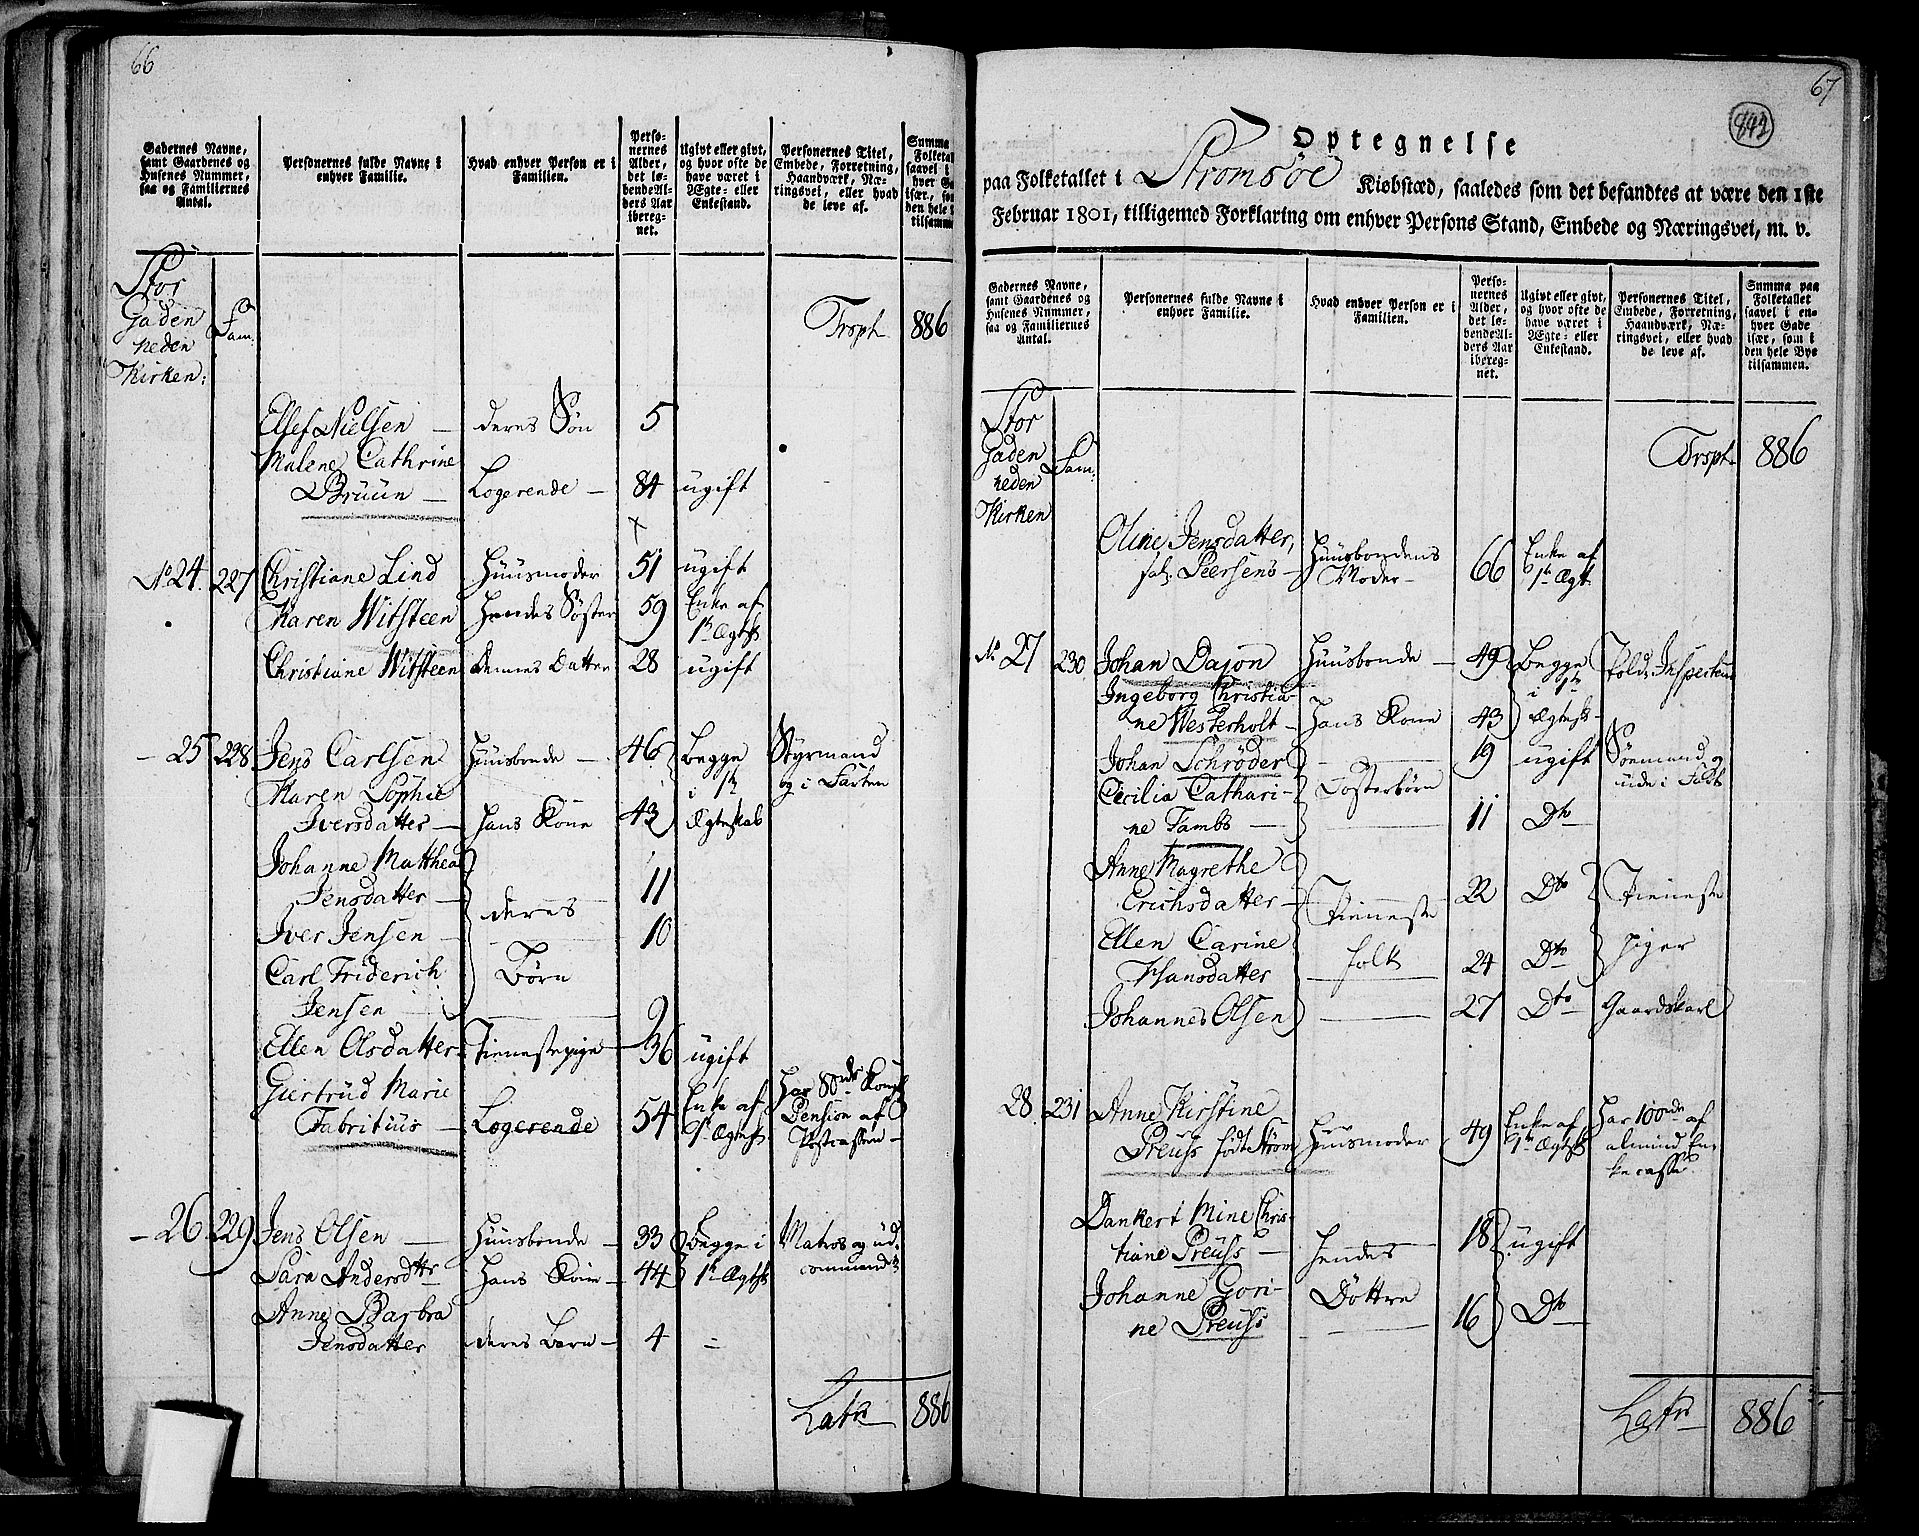 66
Gadernes Navne,
samt Gaardenes og
Husenes Nummer,
saa og Familiernes
Antal.
Personernes fulde Navne i
enhver Familie.
Hvad enhver Person er i
Familien.
Perso-
nernes
Alder,
det lø-
bende Al-
ders Aar
ibereg-
net.
Ugivt eller givt,
og hvor ofte de
have været i
Ægte- eller
Enkestand.
Personernes Titel,
Embede, Forretning,
Haandværk, Næ-
ringsvei, eller hvad
de leve af.
Summa
Folketal
saavel i
hver Ga
især, som
den hele
tilsamm
Stor
Gaden
neden
Kirken:
Fam:
Trspt 886
Ellef Nielsen — deres Søn 5
Malene Cathrine
Bruun — Logerende — 84 ugift
No 24. 227 Christiane Lind Huusmoder 51 ugift
Karen Witsteen Hendes Søster 59 Enke af
1te Ægtsk
Christiane Witsteen Dennes Datter 28 ugift
— 25 228 Jens Carlsen Huusbonde — 46 Begge Styrmand
i 1te og i Farten
Karen Sophie
Iversdatter — Hans Kone 43 Ægteskab
Johanne Matthea
Jensdatter — deres 11
Iver Jensen — 10
Carl Friderich Børn
Jensen — 9
Ellen Olsdatter Tienestepige 36 ugift
Giertrud Marie
Fabritius — Logerende 54 Enke af
1te Ægtesk
Har 80rdr Kongl
Pension af
Postcassen —
— 26 229 Jens Olsen — Huusbonde — 33 Begge i Matros og ud-
Sara Andersdttr Hans Kone — 44 1te Ægtsk commandt
Anne Barbra
Jensdatter deres Barn — 4 —
Lats 886
67
842
Optegnelse
paa Folketallet i Strømsøe Kiøbstæd, saaledes som det befandtes at være den 1ste
Februar 1801, tilligemed Forklaring om enhver Persons Stand, Embede og Næringsvei, m. v.
Gadernes Navne,
samt Gaardenes og
Husenes Nummer,
saa og Familiernes
Antal.
Personernes fulde Navne i
enhver Familie.
Hvad enhver Person er i
Familien.
Perso-
nernes
Alder,
det lø-
bende Al-
ders Aar
ibereg-
net.
Ugivt eller givt,
og hvor ofte de
have været i
Ægte- eller
Enkestand.
Personernes Titel,
Embede, Forretning,
Haandværk, Næ-
ringsvei, eller hvad
de leve af.
Summa paa
Folketallet
saavel i en-
hver Gade
især, som i
den hele Bye
tilsammen.
Stor
Gaden
neden
Kirken
Fam:
Trspt 886
Oline Jensdatter,
sal. Peersens — Huusbondens
Moder — 66 Enke af
1te Ægt.
No 27 230 Johan Dajon Huusbonde — 49 Begge Told Inspecteur
i 1te
Ingeborg Christia-
ne Westerholt — Hans Kone 43 Ægtesk-
Johan Schrøder — 19 ugift Sømand og
Fosterbørn ude i Fart
Cecilia Cathari-
ne Tambs — 11 Dto
Anne Magrethe
Erichsdatter — Tieneste 22 Dto Tieneste
Ellen Carine
Hansdatter folk 24 Dto piger
Johannes Olsen — 27 Dto Gaardskarl
28 231 Anne Kirstine
Preuss født Strøm Huusmoder 49 Enke af
1te Ægtsk
Har 100rdr af
almind En-
kecasse.
Dankert Mine Chris-
tiane Preuss — Hendes 18 ugift
Johanne Gori- Døttre
ne Preuss 16 Dto
Lats 886